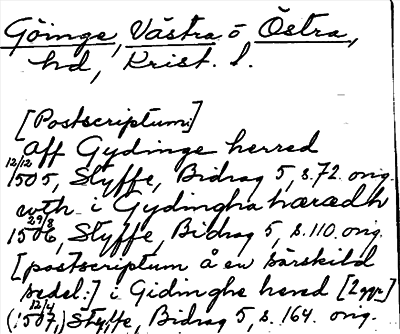 Göinge, Västra o Östra,
hd, Krist. l.
[Postscriptum:]
Aff Gydinge herred
12/12 1505, Styffe, Bidrag 5, s. 72. orig.
wth i Gydingha hæradh
29/8 1506, Styffe, Bidrag 5, s. 110. orig.
[postscriptum å en särskild
sedel:] i Gidinghe hered [2 ggr]
(12/4 1507,) Styffe, Bidrag 5, s. 164. orig.